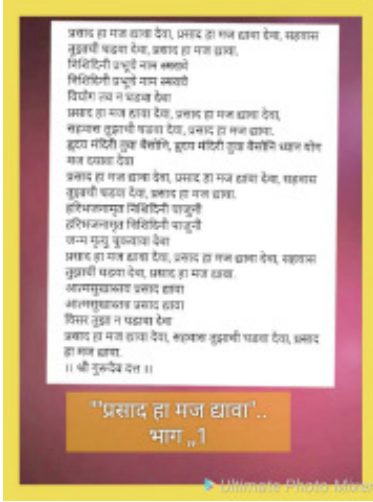 प्रसाद हा मज द्यावा देवा, प्रसाद हा मज द्यावा देवा, सहवास
तुझाची घडवा देवा, प्रसाद हा मज द्यावा.
निशिदिनी प्रभूचे नाम स्मरावे
निशिदिनी प्रभूचे नाम स्मरावे
वियोग तव न घडवा देवा
प्रसाद हा मज द्यावा देवा, प्रसाद हा मज द्यावा देवा,
सहवास तुझाची घडवा देवा, प्रसाद हा मज द्यावा.
हृदय मंदिरी तुवा बैसोनि, हृदय मंदिरी तुवा बैसोनि ध्यान योग
मज द्यावा देवा
प्रसाद हा मज द्यावा देवा, प्रसाद हा मज द्यावा देवा, सहवास
तुझाची घडवा देवा, प्रसाद हा मज द्यावा.
हरिभजनामृत निशिदिनी पाजुनी
हरिभजनामृत निशिदिनी पाजुनी
जन्म मृत्यु चुकवावा देवा
प्रसाद हा मज द्यावा देवा, प्रसाद हा मज द्यावा देवा, सहवास
तुझाची घडवा देवा, प्रसाद हा मज द्यावा.
आत्मसुखास्तव प्रसाद द्यावा
आत्मसुखास्तव प्रसाद द्यावा
विसर तुझा न घडावा देवा
प्रसाद हा मज द्यावा देवा, सहवास तुझाची घडवा देवा, प्रसाद
हा मज द्यावा.
।। श्री गुरुदेव दत्त ।।
"'प्रसाद हा मज द्यावा'..
भाग ,,1
Ultimate Photo Mixer